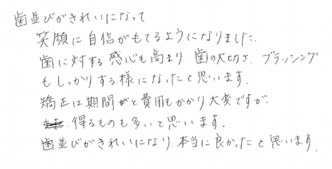 歯並びがきれいになって
笑顔に自信がもてるようになりました。
歯に対する感心も高まり 歯の大切さ、ブラッシング
もしっかりする様になったと思います。
矯正は期間がと費用もかかり大変ですが、
得るものも多いと思います。
歯並びがきれいになり、本当に良かったと思います。